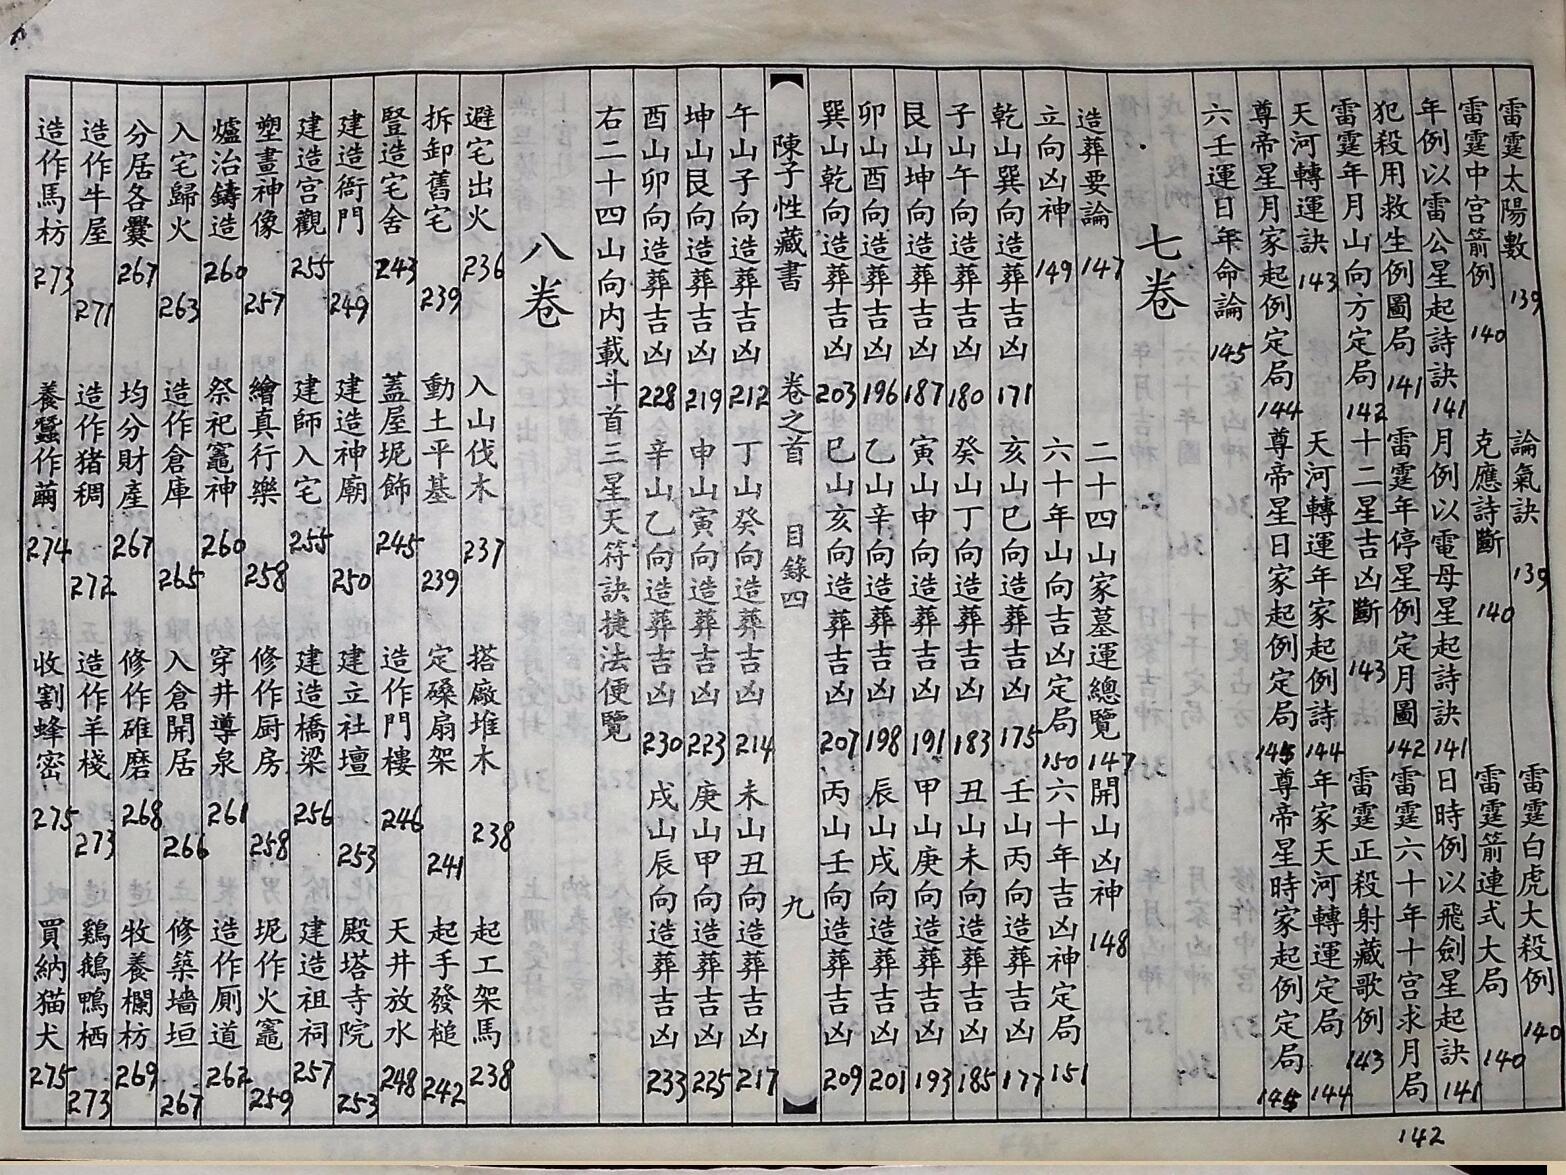 雷霆太陽數 139 論氣訣 139 雷霆白虎大殺例 140
雷霆中宮箭例 140 克應詩斷 140 雷霆箭連式大局 140
年例以雷公星起詩訣 141 月例以電母星起詩訣 141 日時例以飛劍星起訣 141
犯殺用救生例圖局 141 雷霆年停星例定月圖 142 雷霆六十年十宮求月局 142
雷霆年月山向方定局 142 十二星吉凶斷 143 雷霆正殺射藏歌例 143
天河轉運訣 143 天河轉運年家起例詩 144 年家天河轉運定局 144
尊帝星月家起例定局 144 尊帝星日家起例定局 145 尊帝星時家起例定局 145
六壬運日年命論 145
七卷
造葬要論 147 二十四山家墓運總覽 147 開山凶神 148
立向凶神 149 六十年山向吉凶定局 150 六十年吉凶神定局 151
乾山巽向造葬吉凶 171 亥山巳向造葬吉凶 175 壬山丙向造葬吉凶 177
子山午向造葬吉凶 180 癸山丁向造葬吉凶 183 丑山未向造葬吉凶 185
艮山坤向造葬吉凶 187 寅山申向造葬吉凶 191 甲山庚向造葬吉凶 193
卯山酉向造葬吉凶 196 乙山辛向造葬吉凶 198 辰山戌向造葬吉凶 201
巽山乾向造葬吉凶 203 巳山亥向造葬吉凶 207 丙山壬向造葬吉凶 209
陳子性藏書 卷之首 目錄四 九
午山子向造葬吉凶 212 丁山癸向造葬吉凶 214 未山丑向造葬吉凶 217
坤山艮向造葬吉凶 219 申山寅向造葬吉凶 223 庚山甲向造葬吉凶 225
酉山卯向造葬吉凶 228 辛山乙向造葬吉凶 230 戌山辰向造葬吉凶 233
右二十四山向内載斗首三星天符訣捷法便覽
八卷
避宅出火 236 入山伐木 237 搭廠堆木 238 起工架馬 238
拆卸舊宅 239 動土平基 239 定磉扇架 241 起手發槌 242
豎造宅舍 243 蓋屋坭飾 245 造作門樓 246 天井放水 248
建造衙門 249 建造神廟 250 建立社壇 253 殿塔寺院 253
建造宮觀 255 建師入宅 255 建造橋梁 256 建造祖祠 257
塑畫神像 257 繪真行樂 258 修作厨房 258 坭作火竈 259
爐冶鑄造 260 祭祀竈神 260 穿井導泉 261 造作厠道 262
入宅歸火 263 造作倉庫 265 入倉開居 266 修築墻垣 267
分居各爨 267 均分財產 267 修作碓磨 268 牧養欄枋 269
造作牛屋 271 造作猪稠 272 造作羊棧 273 鷄鵝鴨栖 273
造作馬枋 273 養蠶作繭 274 收割蜂密 275 買納猫犬 275